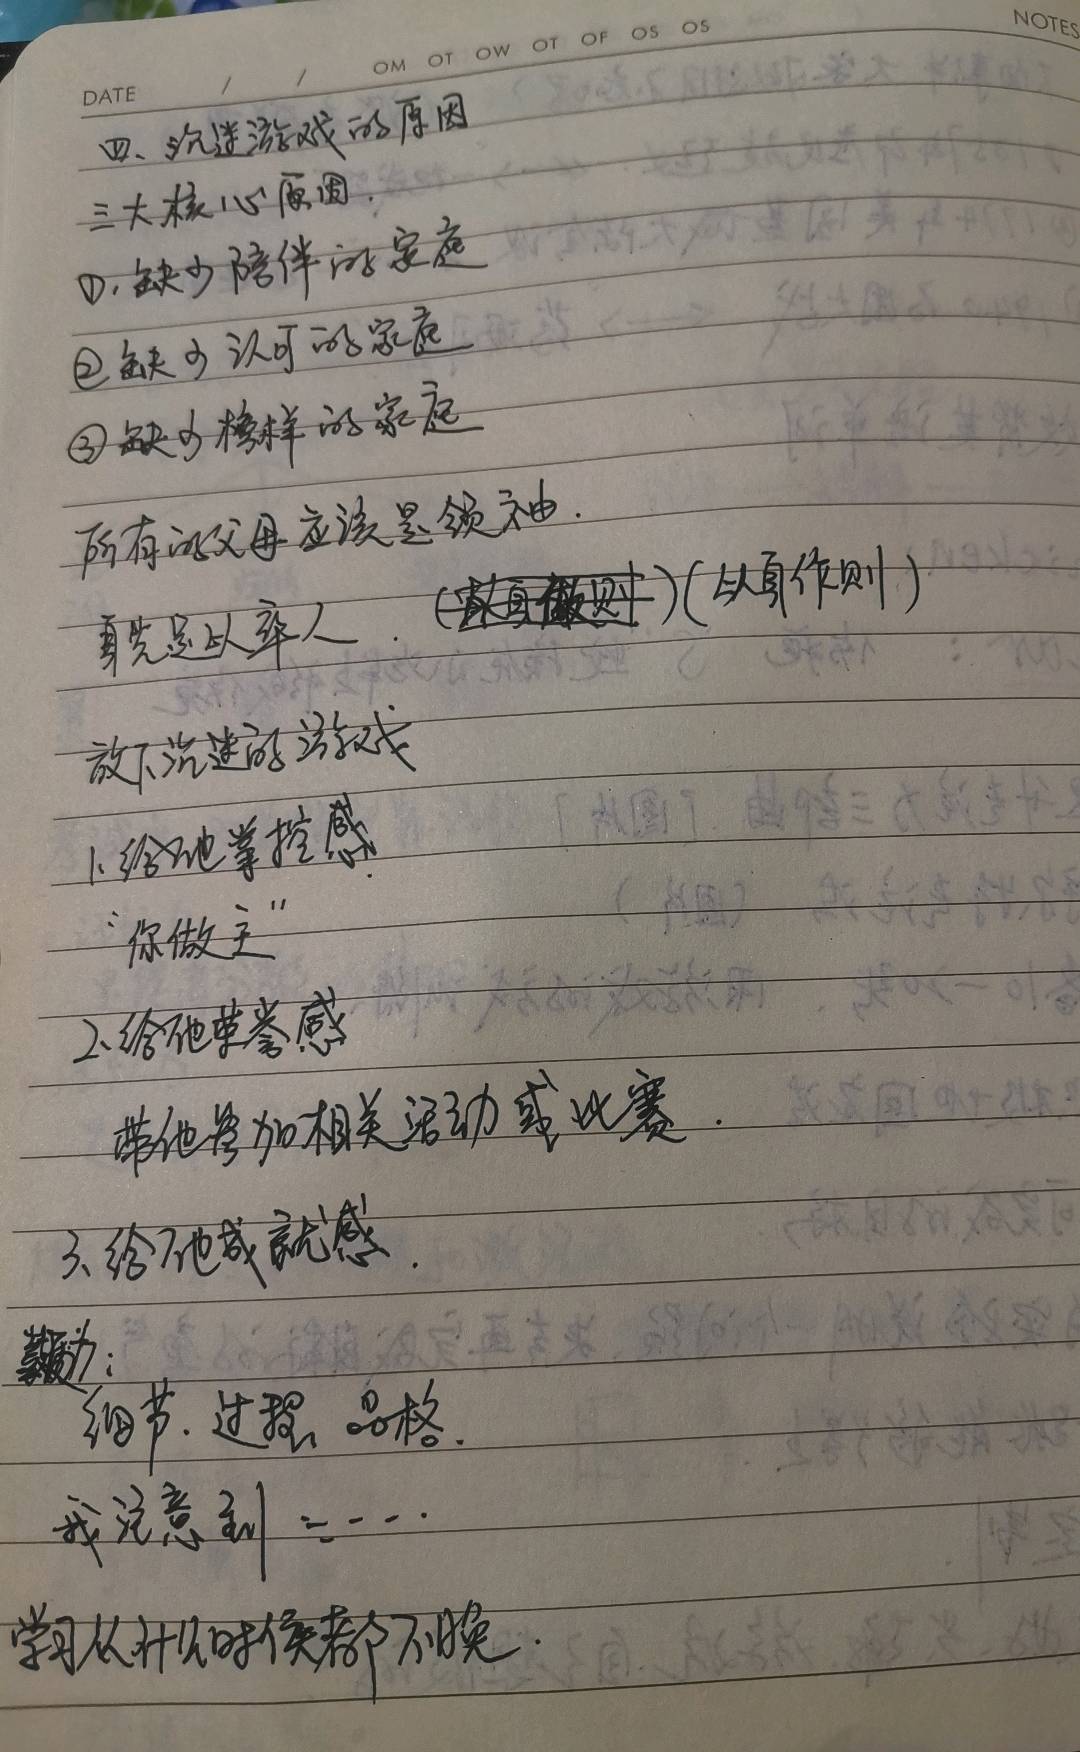 DATE / / OM OT OW OT OF OS OS NOTES
四、沉迷游戏的原因
三大核心原因.
①.缺少陪伴的家庭
②缺少认可的家庭
③缺少榜样的家庭
所有的父母应该是领袖.
首先是以率人. ( ) (以身作则)
放下沉迷的游戏
1.给他掌控感.
"你做主"
2.给他荣誉感
带他参加相关活动或比赛.
3、给他成就感.
细节.过程、品格.
我注意到
学习从什么时候都不晚.